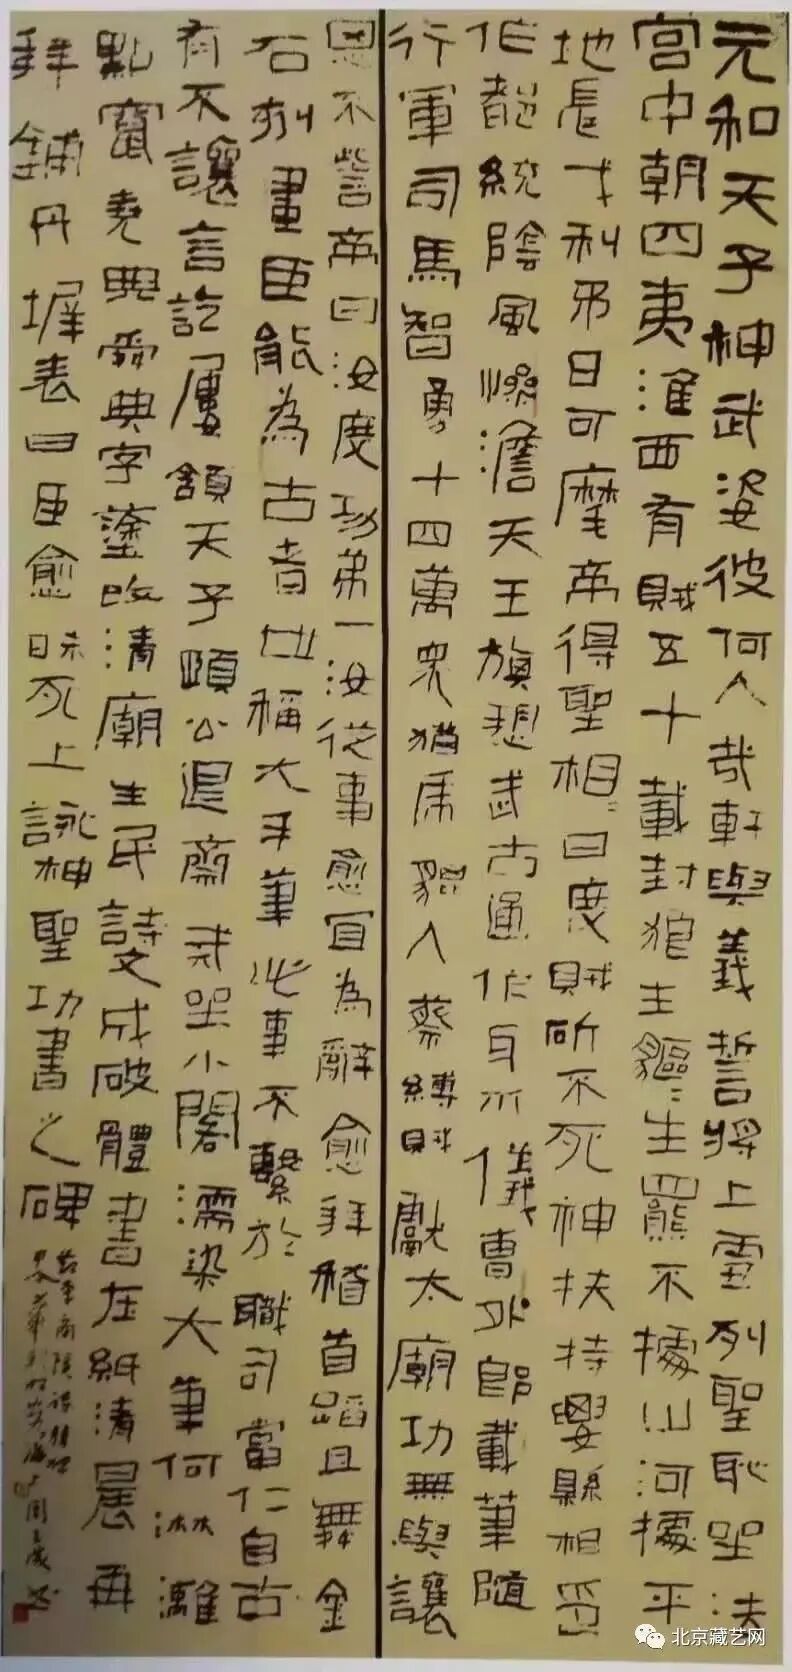 元和天子神武姿彼何人哉軒與羲誓將上雪列聖恥坐法
宮中朝四夷淮西有賊五十載封狼生貙:生羆不據山河據平
地長戈利矛日可麾帝得聖相:曰度賊斫不死神扶持 縣相印
作都統陰風慘澹天王旗愬武古通作牙爪儀曹外郎載筆隨
行軍司馬智勇十四萬眾猶虎貔入蔡縛賊獻太廟功無與讓
恩不訾帝曰汝度功弟一汝從事愈宜為辭愈拜稽首蹈且舞金
石刻畫臣能為古者世稱大手筆此事不繫於職司當仁自古
有不讓言訖屢頷天子頤公退齋戒坐小閣濡染大筆何淋漓
點竄堯典舜典字塗改清廟生民詩文成破體書在紙清晨再
拜鋪丹墀表曰臣愈昧死上詠神聖功書之碑
李商隱詩韓碑
北京藏艺网